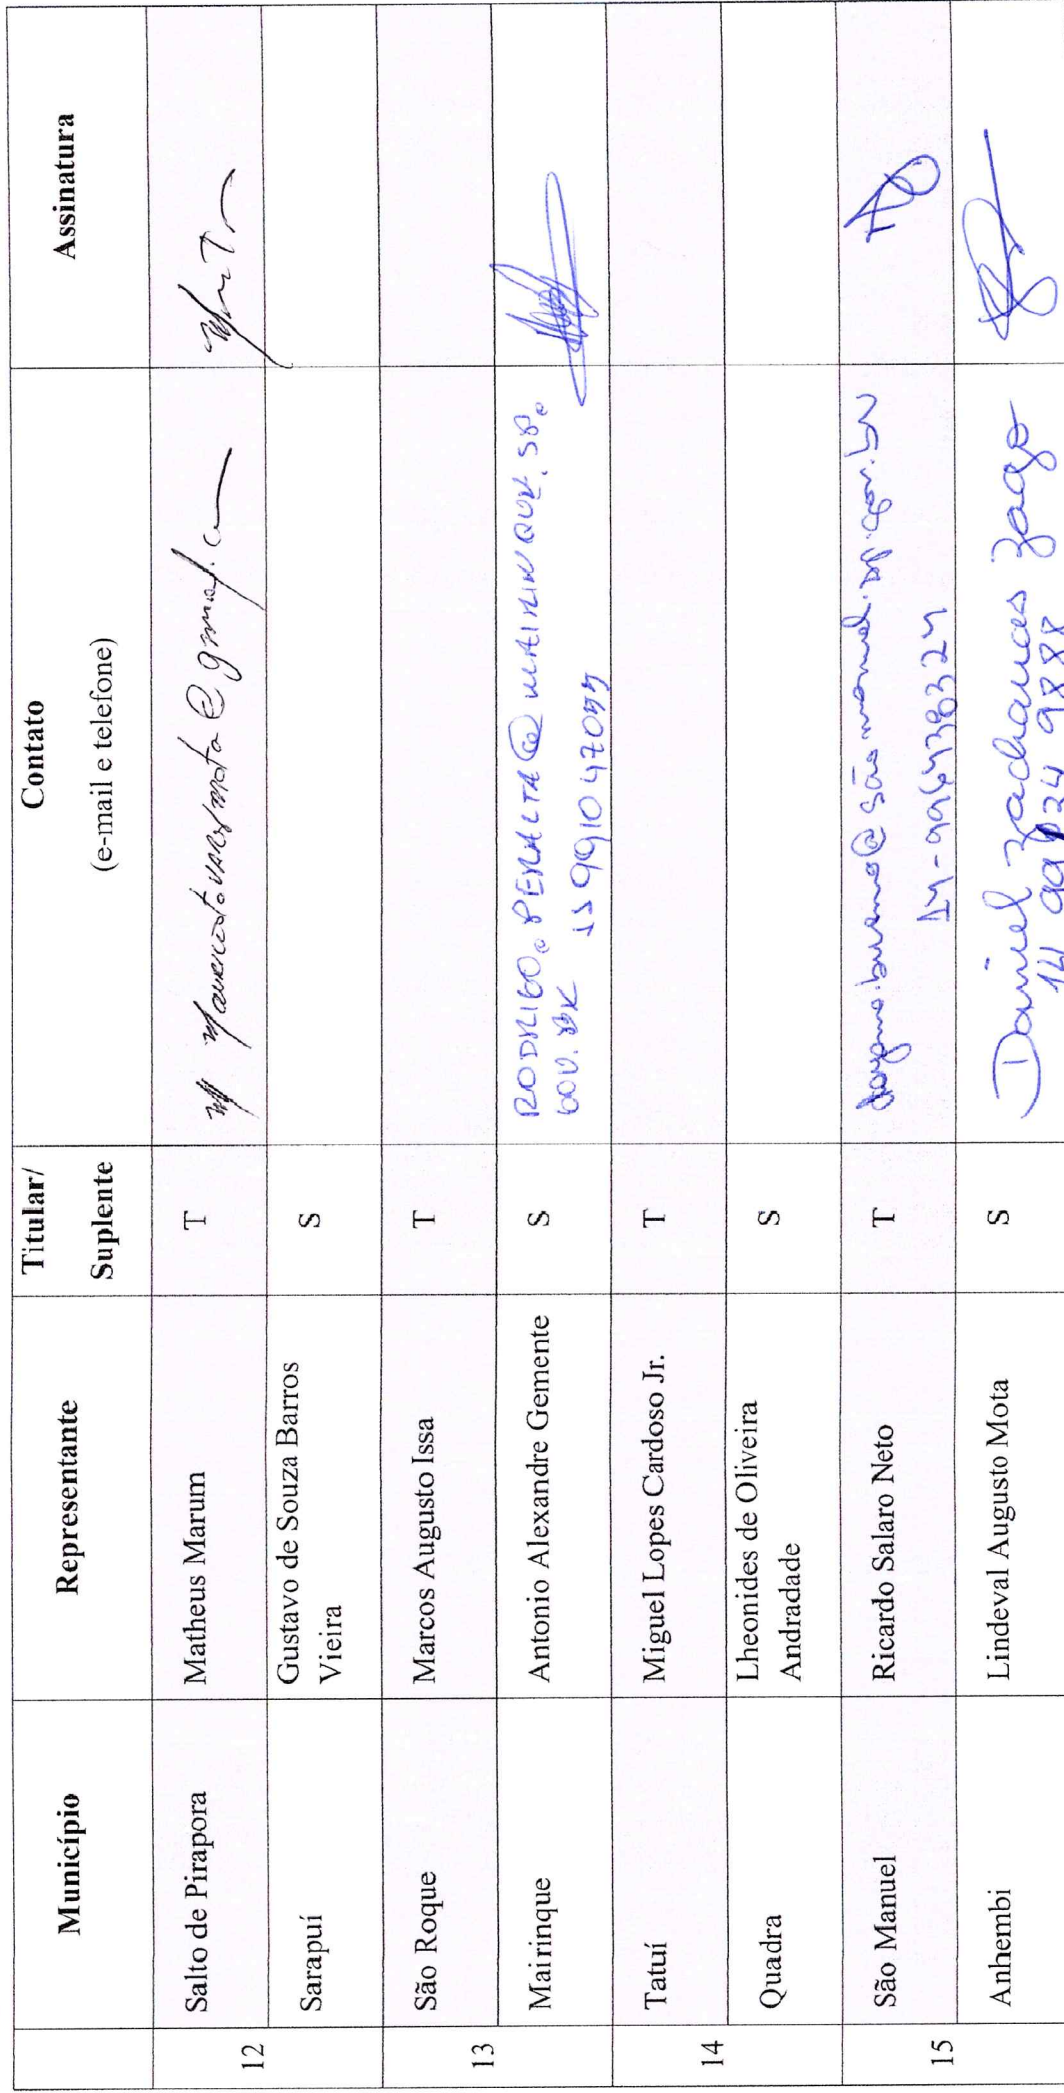 Município Representante Titular/ Suplente Contato (e-mail e telefone) Assinatura
12 Salto de Pirapora Matheus Marum T
Sarapuí Gustavo de Souza Barros Vieira S
13 São Roque Marcos Augusto Issa T
Mairinque Antonio Alexandre Gemente S RODRIGO.PERALTA@MAIRINQUE.SP.
GOV.BR
14 Tatuí Miguel Lopes Cardoso Jr. T
Quadra Lheonides de Oliveira Andradade S
15 São Manuel Ricardo Salaro Neto T
14-996438324
Anhembi Lindeval Augusto Mota S Daniel zacharias zago